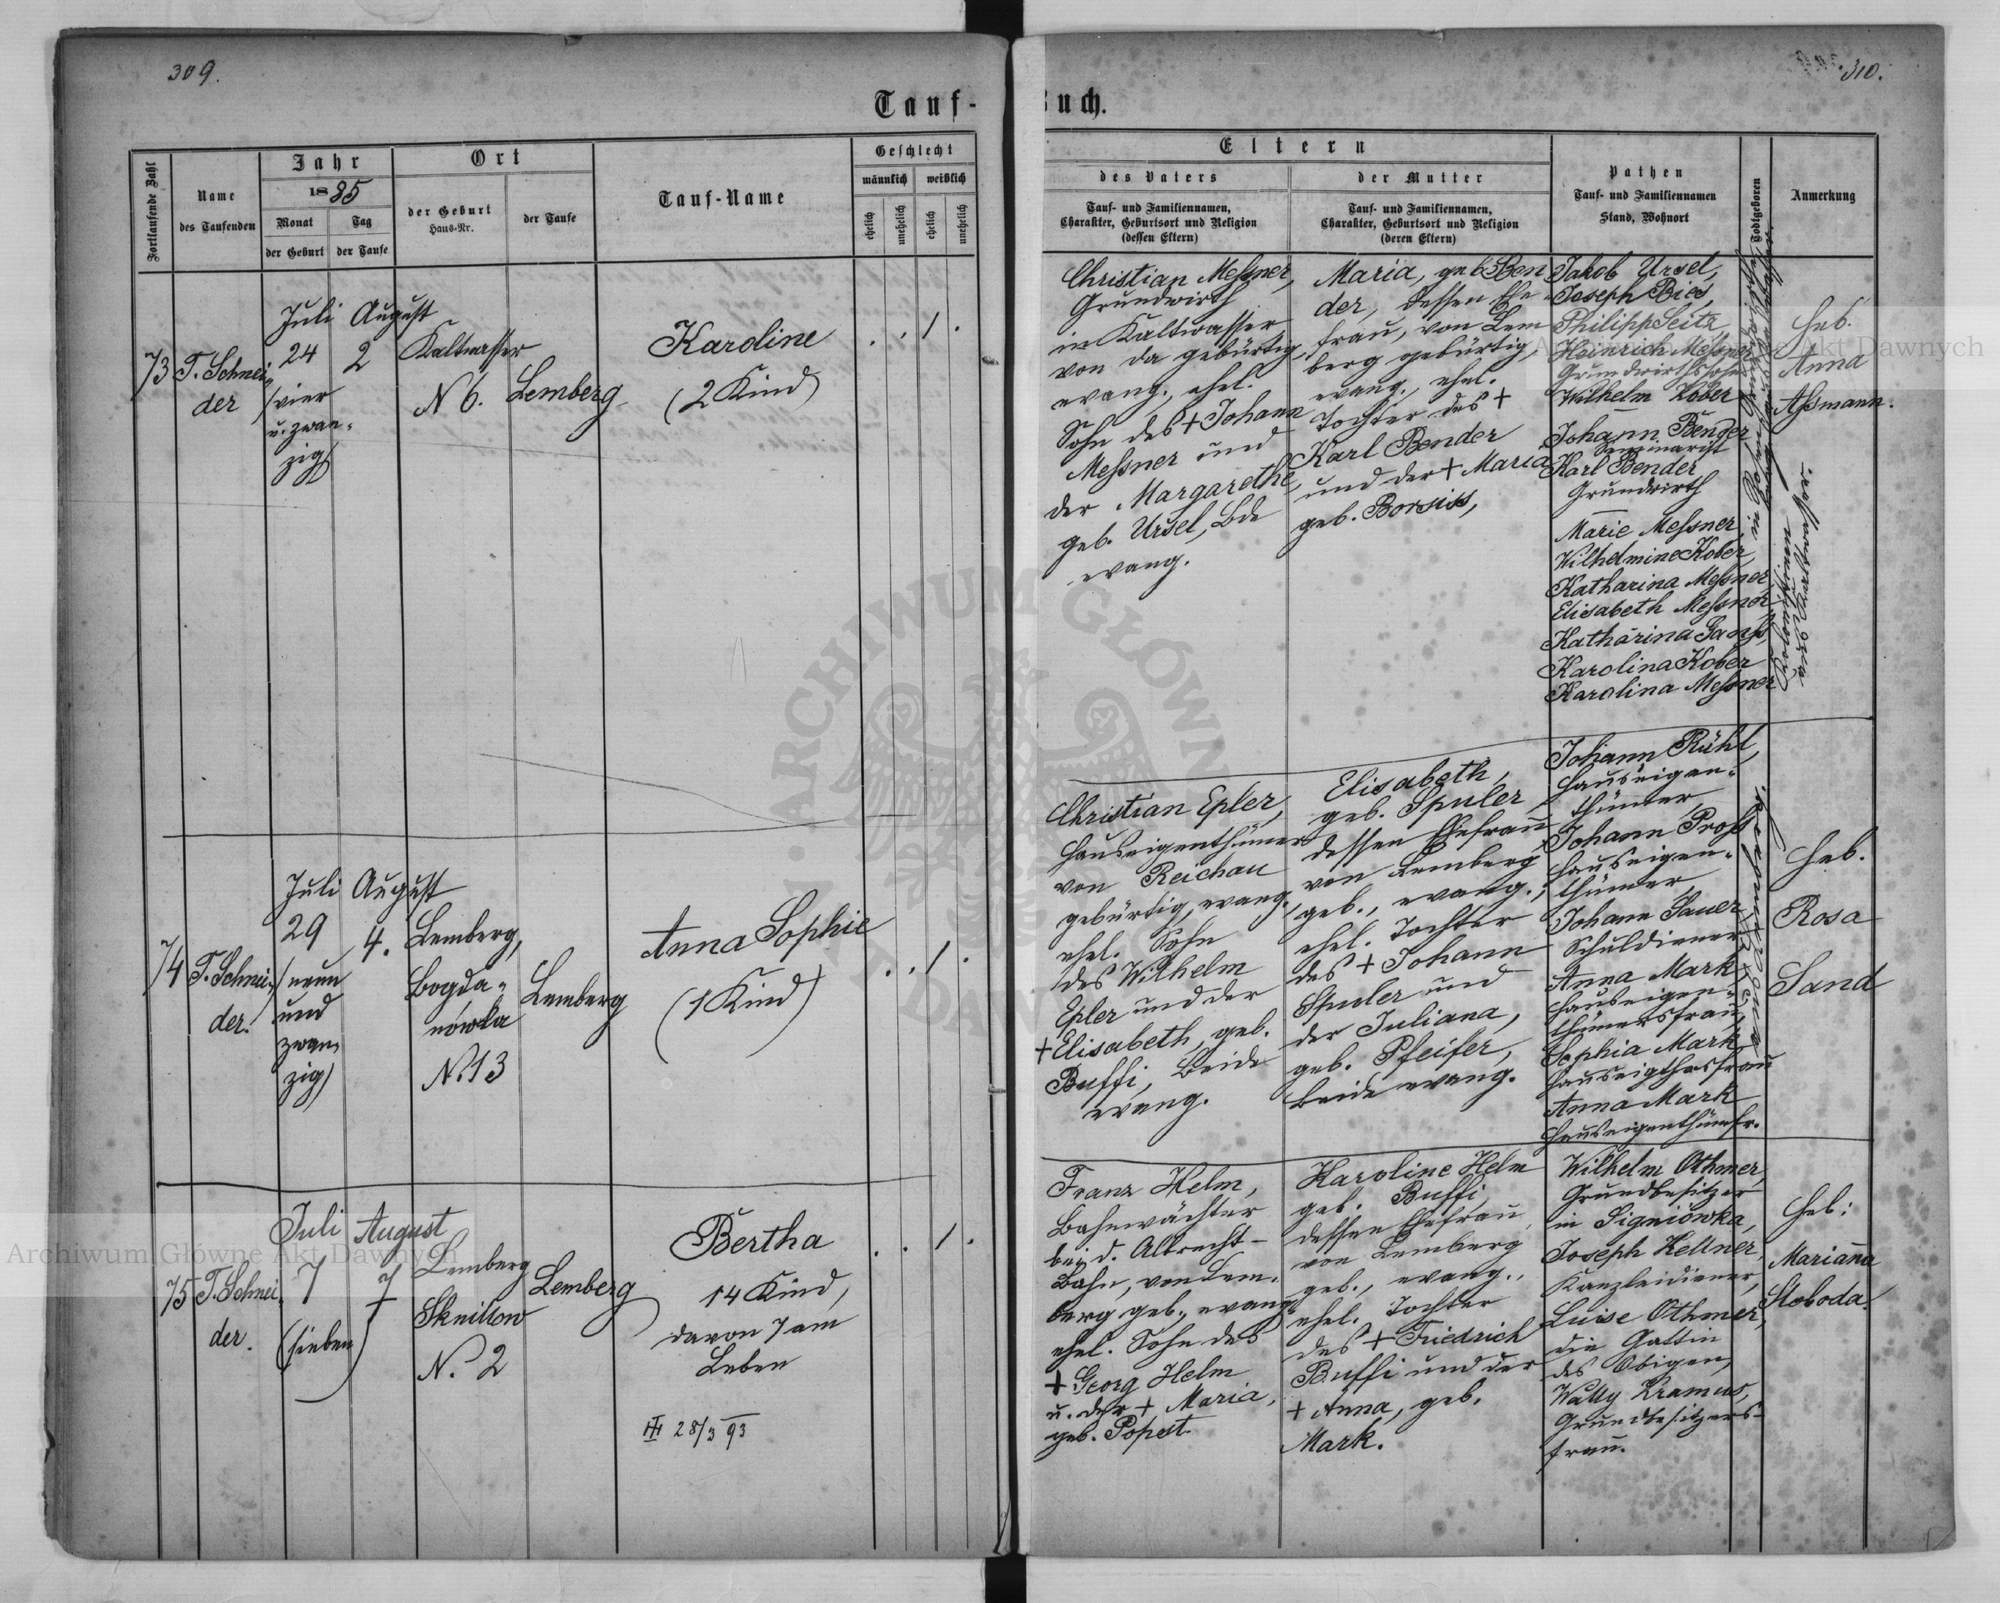 309.
310.
Tauf-
Buch.
Fortlaufende Zahl
Name
des Taufenden
Jahr
1885
Monat
der Geburt
Tag
der Taufe
Ort
der Geburt
Haus-Nr.
der Taufe
Tauf-Name
Geschlecht
männlich
weiblich
ehelich
unehelich
ehelich
unehelich
Eltern
des Vaters
Tauf- und Familiennamen,
Charakter, Geburtsort und Religion
(dessen Eltern)
der Mutter
Tauf- und Familiennamen,
Charakter, Geburtsort und Religion
(deren Eltern)
Pathen
Tauf- und Familiennamen
Stand, Wohnort
Todtgeboren
Anmerkung
73
T. Schnei-
der
Juli
24
(vier
u. zwan-
zig)
August
2
Kaltwasser
N 6.
Lemberg
Karoline
(2 Kind)
. . 1 .
Christian Meßner,
Grundwirth
in Kaltwasser
von da gebürtig,
evang., ehel.
Sohn des + Johann
Meßner und
der Margarethe,
geb. Ursel, Bde
evang.
Maria, geb Ben
der, dessen Ehe
frau, von Lem
berg gebürtig,
evang., ehel.
Tochter des +
Karl Bender
und der + Maria
geb. Borsiss,
Jakob Ursel,
Joseph Bies,
Philipp Seitz,
Heinrich Meßner
Grundwirthssohn
Wilhelm Kober
Johann Bender
Seminarist
Karl Bender
Grundwirth
Marie Meßner,
Wilhelmine Kober
Katharina Meßner,
Elisabeth Meßner,
Katharina Ganß,
Karolina Kober
Karolina Meßner
in
aus Kaltwasser.
Heb.
Anna
Aßmann.
74
T. Schnei-
der.
Juli
29
(neun
und
zwan-
zig)
August
4.
Lemberg,
Bogda-
nowka
N. 13
Lemberg
Anna Sophie
(1 Kind)
. . 1 .
Christian Epler,
Hauseigenthümer
von Reichau
gebürtig, evang.,
ehel. Sohn
des Wilhelm
Epler und der
+ Elisabeth, geb.
Buffi, beide
evang.
Elisabeth,
geb. Spuler
dessen Ehefrau,
von Lemberg
geb., evang.,
ehel. Tochter
des + Johann
Spuler und
der Juliana,
geb. Pfeifer,
beide evang.
Johann Rühl,
Hauseigen-
thümer,
Johann Proß
Hauseigen-
thümer
Johann Sauer
Schuldiener
Anna Mark
Hauseigen-
thümersfrau,
Sophia Mark,
Hauseigthrsfrau
Anna Mark
Hauseigenthümfr.
Heb.
Rosa
Sand
75
T. Schnei-
der.
Juli
7
(sieben)
August
7
Lemberg
Sknilow
N. 2
Lemberg
Bertha
14 Kind,
davon 7 am
Leben
28/3 93
. . 1 .
Franz Helm,
Bahnwächter
bei d. Albrecht-
Bahn, von Lem-
berg geb., evang.
ehel. Sohn des
+ Georg Helm
u. der + Maria,
geb. Popst.
Karoline Helm
geb. Buffi,
dessen Ehefrau,
von Lemberg
geb., evang.,
ehel. Tochter
des + Friedrich
Buffi und der
+ Anna, geb.
Mark.
Wilhelm Othmer,
Grundbesitzer
in Signiowka,
Joseph Kellner,
Kanzleidiener,
Luise Othmer,
die Gattin
des Obigen,
Wally Kramus,
Grundbesitzers-
frau.
Heb:
Marianna
Sloboda.
Archiwum Główne Akt Dawnych
Archiwum Główne Akt Dawnych